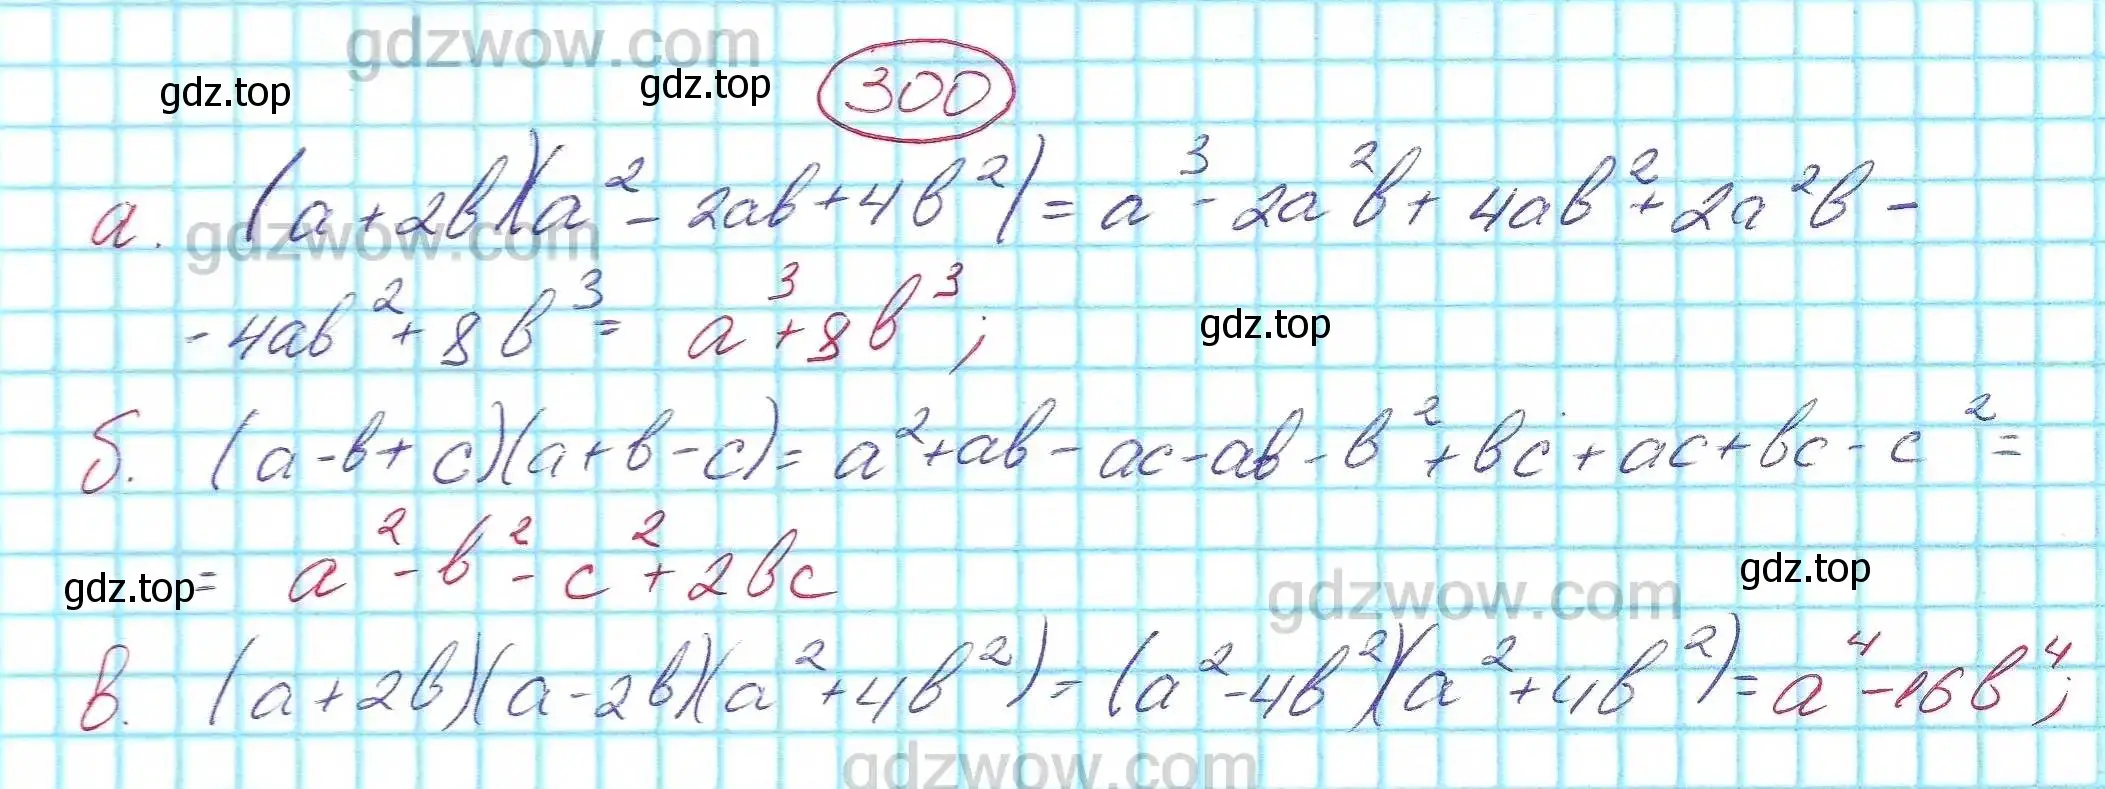 gdzwow.com
gdz.top gdz.top 300
а. (a+2b)(a²-2ab+4b²)=a³-2a²b+4ab²+2a²b-
gdzwow.com
-4ab²+8b³= a³+8b³;
gdz.top
б. (a-b+c)(a+b-c)=a²+ab-ac-ab-b²+bc+ac+bc-c²=
= a²-b²-c²+2bc
gdz.top gdzwow.com gdz.top
в. (a+2b)(a-2b)(a²+4b²)=(a²-4b²)(a²+4b²)=a⁴-16b⁴;
gdzwow.com